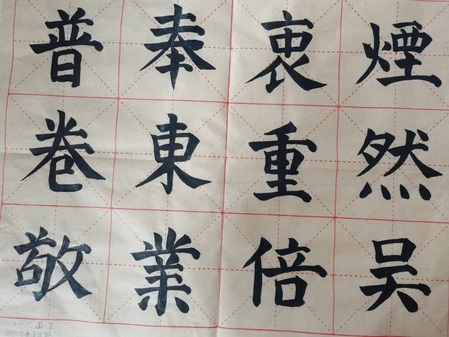 普奉衷煙
卷東重然
敬業倍吴